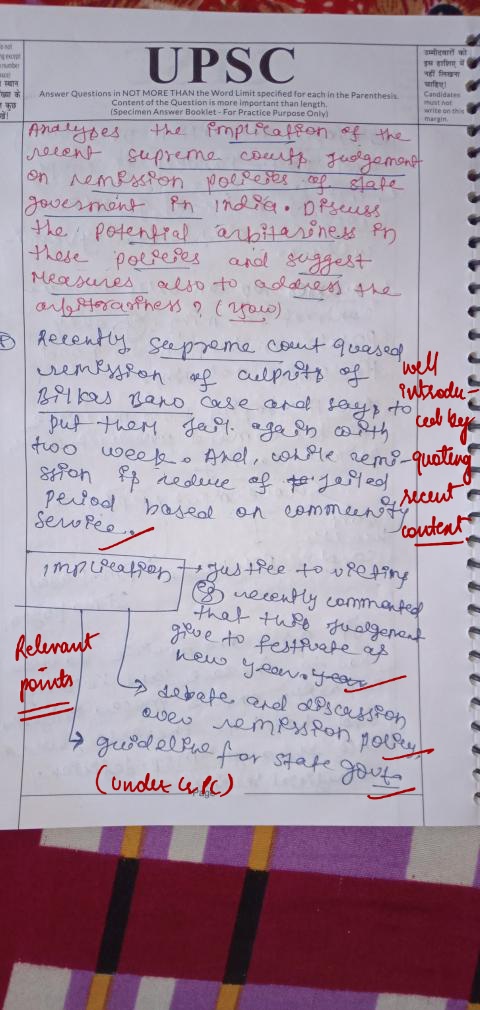 UPSC
Answer Questions in NOT MORE THAN the Word Limit specified for each in the Parenthesis.
Content of the Question is more important than length.
(Specimen Answer Booklet - For Practice Purpose Only)
उम्मीदवारों को
इस हाशिए में
नहीं लिखना
चाहिए।
Candidates
must not
write on this
margin.
Analyses the implication of the
recent supreme courts judgement
on remission policies of state
goverment in India. Discuss
the potential arbitariness in
these policies and suggest
measures also to address the
arbitrariness?
Recently Supreme court quased
remission of culprits of
Bilkas Bano case and says to
put them jail again with
two week. And, while remi-
ssion is reduce of jailed
period based on community
service.
well
introdu-
ced by
quoting
recent
content
implication → justice to victims
recently commented
that this judgement
give to festivate as
new year.
→ debate and discussion
over remission policy.
→ guideline for state govt.
Relevant
points
(under CrPC)
Page